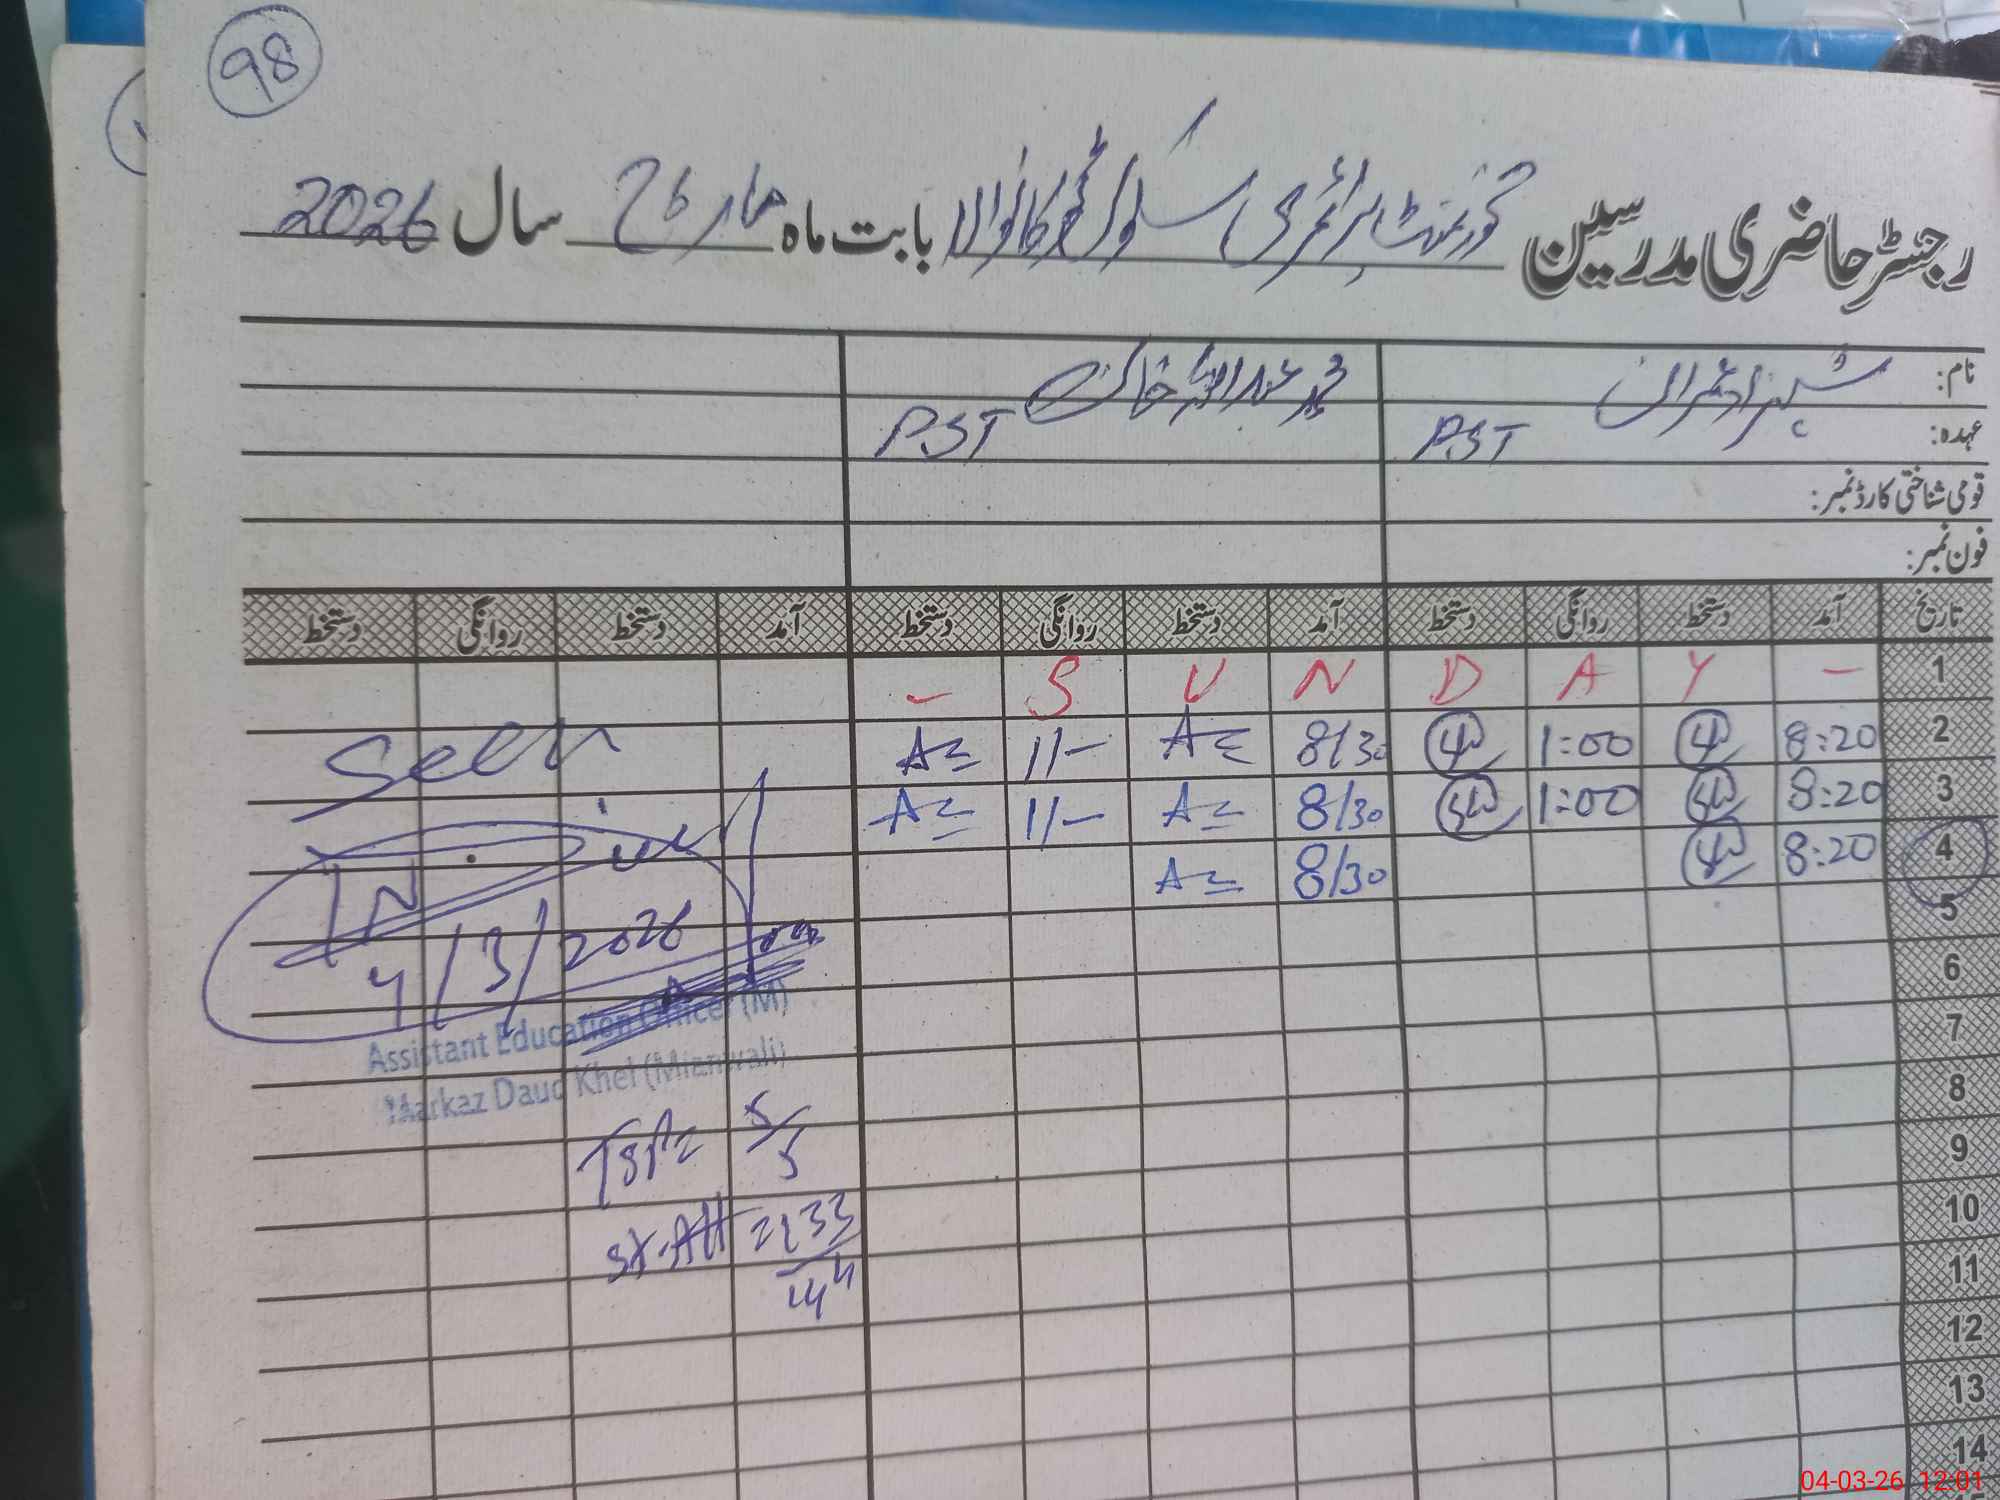 98
رجسٹر حاضری مدرسین گورنمنٹ پرائمری سکول بابت ماہ مارچ 26 سال 2026
نام: شہزاد عمران محمد عبداللہ خان
عہدہ: PST PST
قومی شناختی کارڈ نمبر:
فون نمبر:
تاریخ آمد دستخط روانگی دستخط آمد دستخط روانگی دستخط آمد دستخط روانگی دستخط
1 - S U N D A Y -
2 8:20 1:00 8/30 1/-
3 8:20 1:00 8/30 1/-
4 8:20 8/30
5
6
7
8
9
10
11
12
13
14
Seen
4/3/2026
Assistant Education Officer (M)
Markaz Daud Khel (Mianwali)
5/5
St. Att = 133/144
04-03-26 12:01